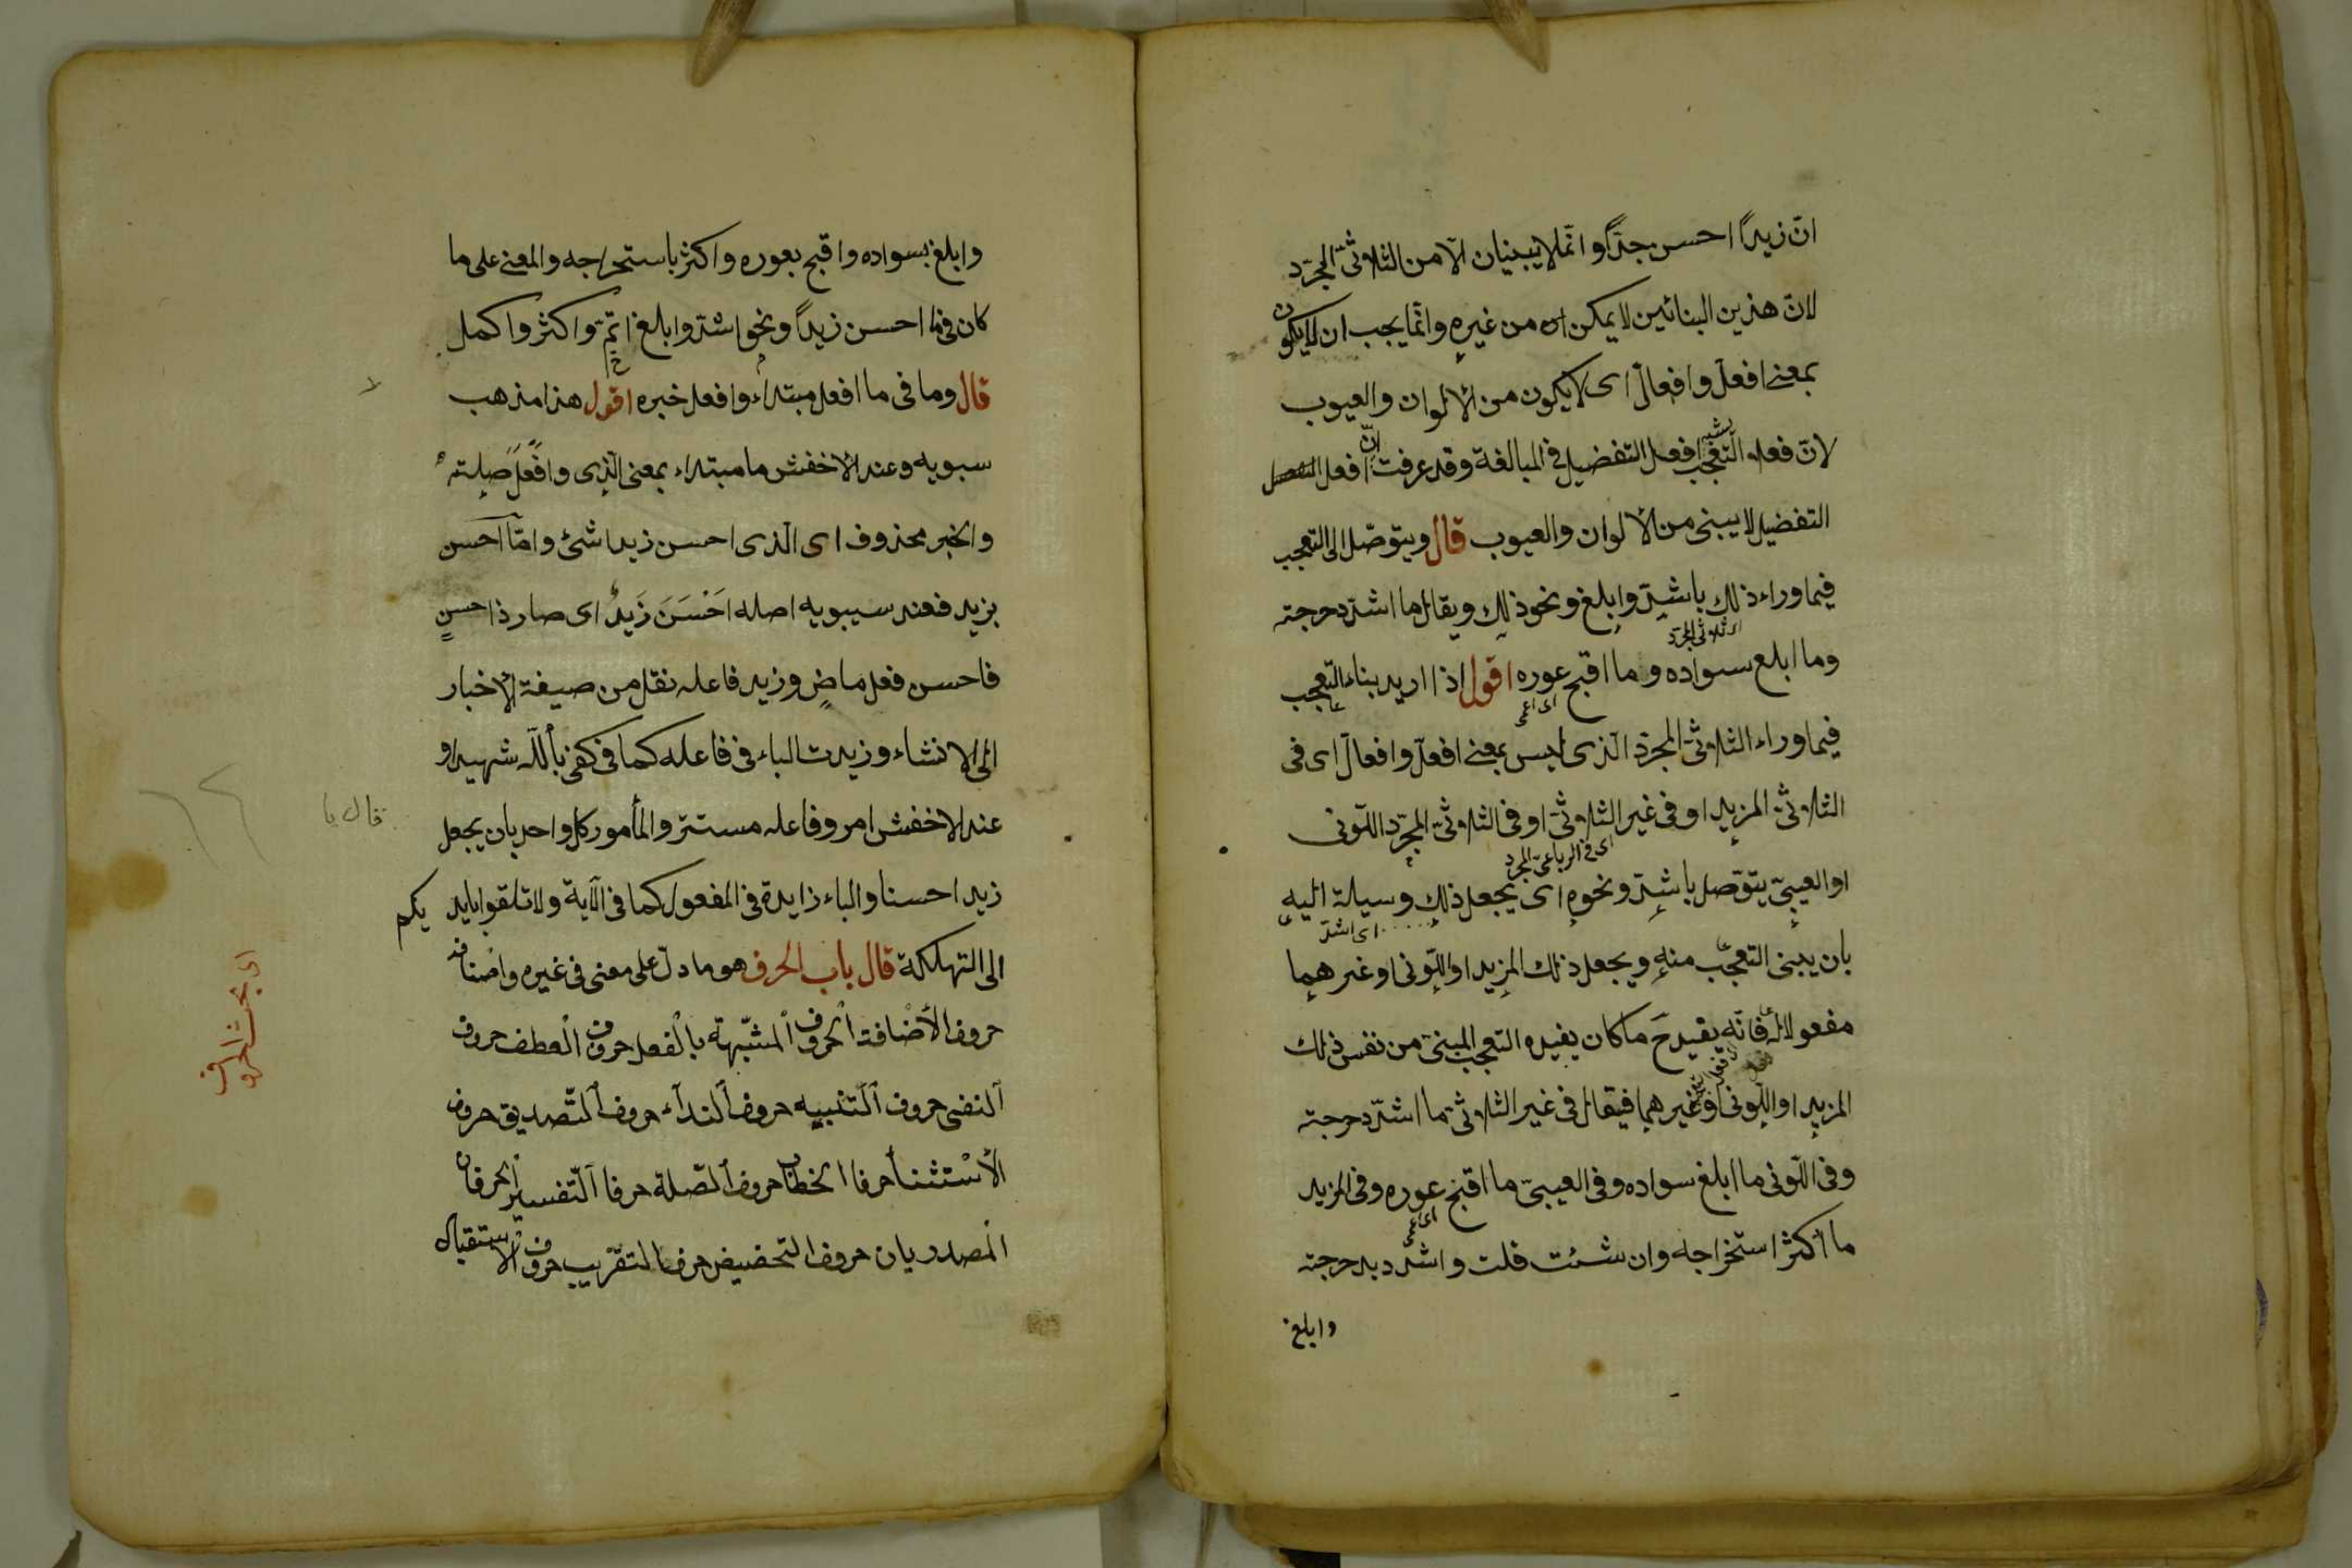 انّ زيداً احسن جدّاً وانّما لا يبنيان الّا من الثلاثىّ المجرّد
لانّ هذين البنائين لا يمكن ان من غيره وانّما يجب ان لا يكون
بمعنى افعلّ وافعالّ اى لا يكون من الالوان والعيوب
لانّ فعل التعجّب يشبه افعل التفضيل فى المبالغة وقد عرفت انّ افعل
التفضيل لا يبنى من الالوان والعيوب قال ويتوصّل الى التعجب
فيما وراء ذلك باشدّ وابلغ ونحو ذلك ويقال ما اشدّ دحرجته
اى ثلاثى المجرّد
وما ابلغ سواده وما اقبح عوره اقول اذا اريد بناء التعجب
اى اعمى
فيما وراء الثلاثىّ المجرّد الّذى ليس بمعنى افعلّ وافعالّ اى فى
الثلاثىّ المزيد او فى غير الثلاثىّ او فى الثلاثىّ المجرّد اللّونى
اى فى الرباعىّ المجرد
او العيبىّ يتوّصل باشدّ ونحوه اى يجعل ذلك وسيلة اليه
اى اشدّ
بان يبنى التعجّب منه ويجعل ذلك المزيد او اللّونى او غيرهما
مفعولا له فانّه يفيد ح ما كان يفيده التعجب المبنىّ من نفس ذلك
المزيد او اللّونى او غيرهما فيقال فى غير الثلاثىّ ما اشدّ دحرجته
وفى اللّونى ما ابلغ سواده وفى العيبىّ ما اقبح عوره وفى المزيد
اى اعمى
ما اكثر استخراجه وان شئت قلت واشدد بدحرجته
وابلغ
وابلغ بسواده واقبح بعوره واكثر باستخراجه والمعنى على ما
كان فى ما احسن زيداً ونحو اشدّ وابلغ اتمّ واكثر واكمل
قال وما فى ما افعل مبتداء وافعل خبره اقول هذا مذهب
سبويه وعند الاخفش ما مبتداء بمعنى الّذى وافعل صلته
والخبر محذوف اى الّذى احسن زيدا شئ وامّا احسن
بزيد فعند سيبويه اصله اَحْسَنَ زَيدٌ اى صار ذا حسنٍ
فاحسن فعل ماضٍ وزيد فاعله نقل من صيغة الاخبار
الى الانشاء وزيدت الباء فى فاعله كما فى كفى بالله شهيدا و
عند الاخفش امر وفاعله مستتر والمأمور كل واحد بان يجعل
قال يا
زيدا حسنا والباء زايدة فى المفعول كما فى الآية ولا تلقوا بايديكم
الى التهلكة قال باب الحرف هو ما دلّ على معنى فى غيره واصنافه
اى بحث الحروف
حروف الأضافة الحروف المشبّهة بالفعل حروف العطف حروف
النفى حروف التّنبيه حروف النداء حروف التّصديق حروف
الأستثنأ حرفا الخطاب حروف الصّلة حرفا التّفسير الحرفان
المصدريان حروف التحضيض حرف التقريب حروف الاستقبال